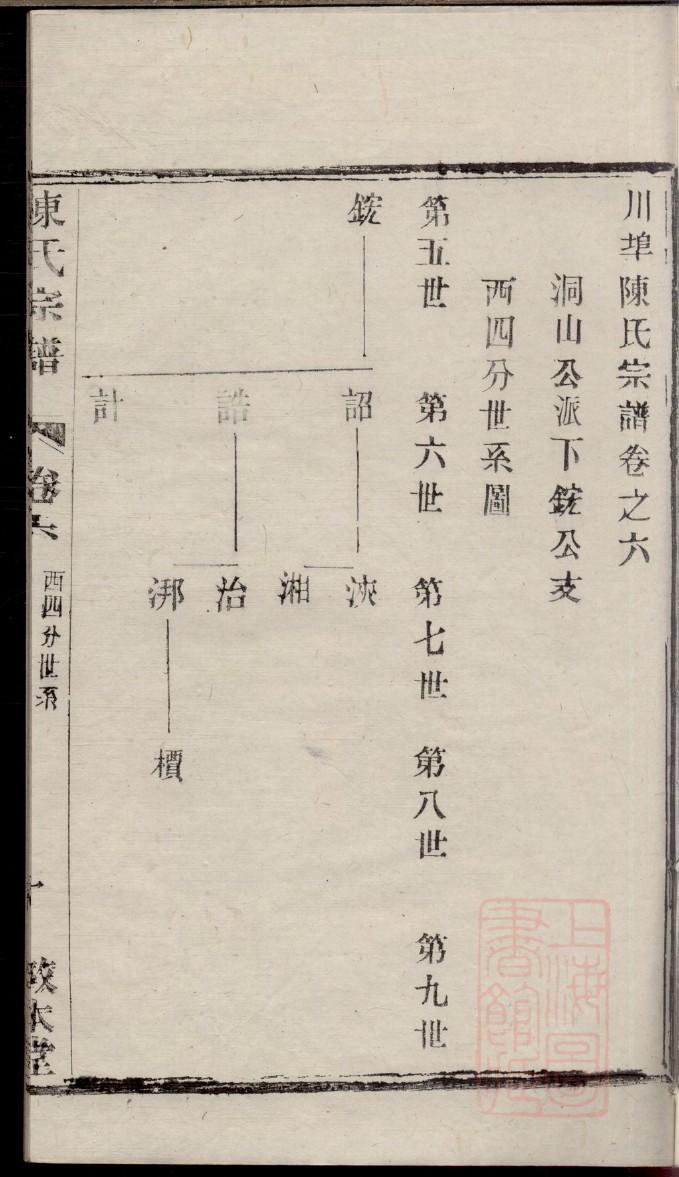 川埠陳氏宗譜卷之六
洞山公派下鋐公支
西四分世系圖
第五世 第六世 第七世 第八世 第九世
鋐
詔 誥 計
浹 湘 治 湖
櫝
陳氏宗譜 卷六 西四分世系 敦本堂
上海圖書館藏